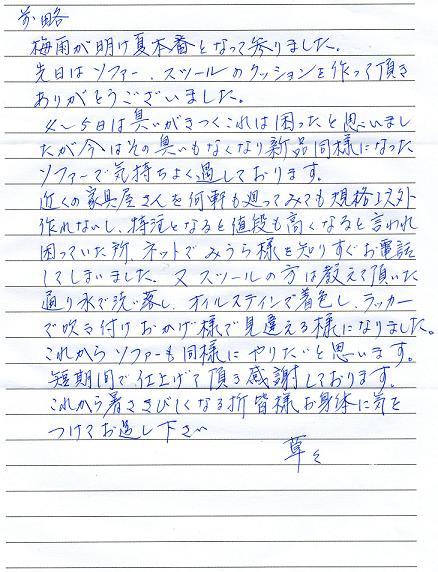 前略
梅雨が明け夏本番となって参りました。
先日はソファー、スツールのクッションを作って頂き
ありがとうございました。
4〜5日は臭いがきつくこれは困ったと思いまし
たが今はその臭いもなくなり新品同様になった
ソファーで気持ちよく過しております。
近くの家具屋さんを何軒も廻ってみても規格以外
作れないし、特注となると値段も高くなると言われ
困っていた所、ネットでみうら様を知りすぐお電話
してしまいました。又スツールの方は教えて頂いた
通り水で洗い落し、オイルステインで着色し、ラッカー
で吹き付けおかげ様で見違える様になりました。
これからソファーも同様にやりたいと思います。
短期間で仕上げて頂き感謝しております。
これから暑さきびしくなる折皆様お身体に気を
つけてお過し下さい
草々